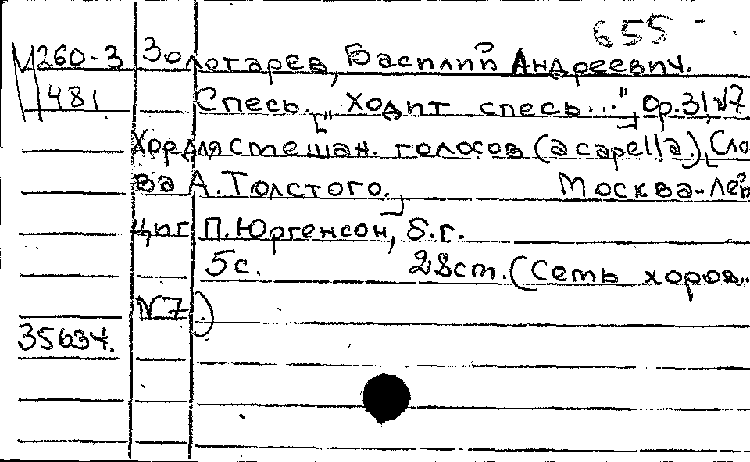 655
М260-3 Золотарев, Василий Андреевич.
481. Спесь. ["Ходит спесь..."] Op.31, №7
Хор для смешан. голосов (a capella). [Сло
ва А. Толстого.] Москва-Лей
пциг П. Юргенсон, б.г.
5 с. 28 ст. (Семь хоров..
№7)
35634.